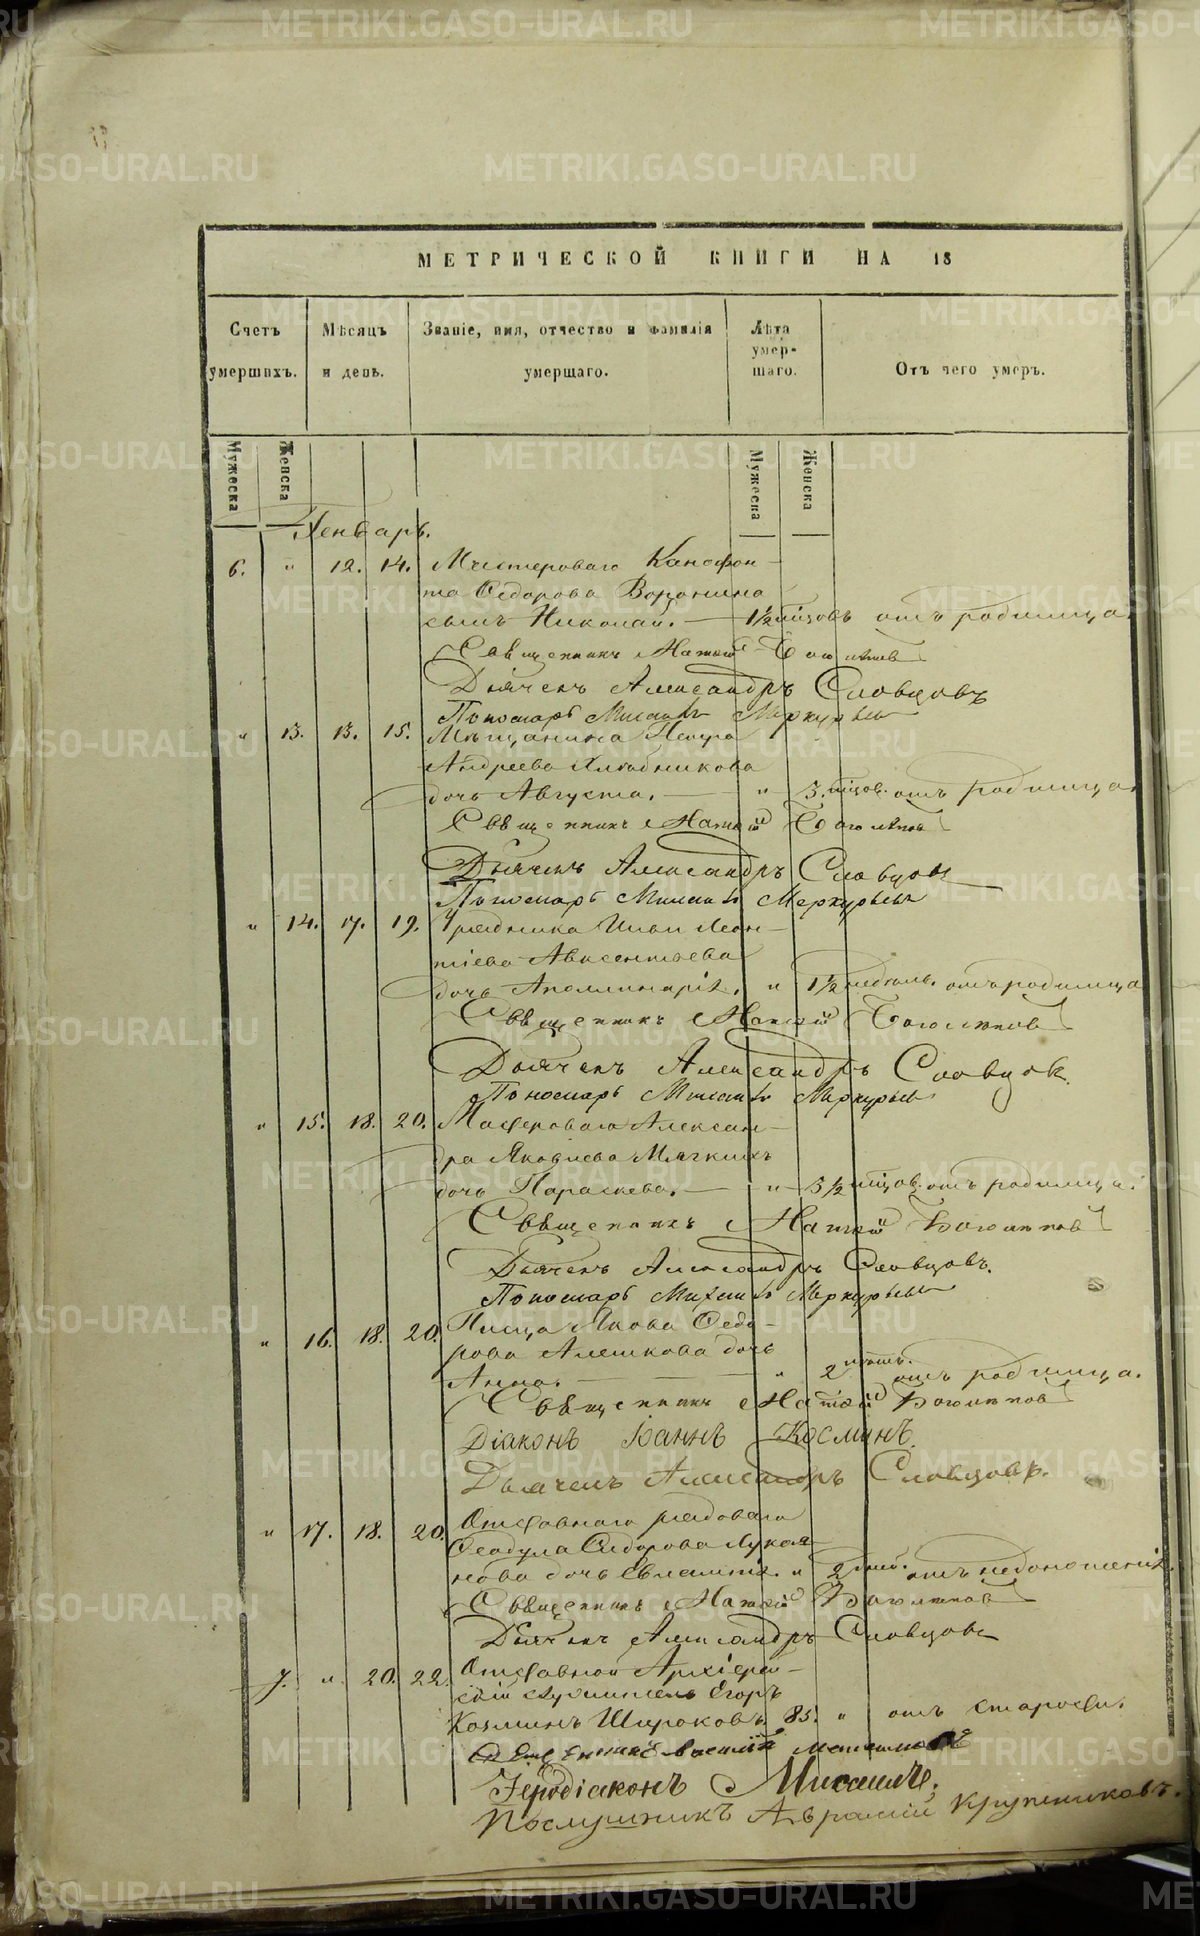 МЕТРИЧЕСКОЙ КНИГИ НА 18
Счетъ умершихъ.
Мѣсяцъ и день.
Званіе, имя, отчество и фамилія умершаго.
Лѣта умер-шаго.
Отъ чего умеръ.
Мужеска Женска Мужеска Женска
Генварь.
6. " 12. 14. Мастероваго Ксенофон-
та Ѳедорова Воронина
сынъ Николай. — 1½ мѣсцовъ отъ родимца.
Священникъ
Дьячекъ Александръ Словцовъ
Пономарь Михаилъ Меркурьевъ
" 13. 13. 15. Мѣщанина Петра
Андреева
дочь Августа. — " 3. мѣсцов. отъ родимца.
Священникъ
Дьячекъ Александръ Словцовъ
Пономарь Михаилъ Меркурьевъ
" 14. 17. 19. Урядника Ильи Леон-
тіева Авксентьева
дочь Аполлинарія. " 1½ недѣль. отъ родимца
Священникъ
Дьячекъ Александръ Словцов
Пономарь Михаилъ Меркурьевъ
" 15. 18. 20. Мастероваго Алексан-
дра Яковлева Мягкихъ
дочь Параскева. — " 3½ мѣсцов. отъ родимца.
Священникъ
Дьячекъ Александръ Словцовъ.
Пономарь Михаилъ Меркурьевъ
" 16. 18. 20. Писца Якова Ѳедо-
рова Алешкова дочь
Анна. — " 2 отъ родимца.
Священникъ
Діаконъ Іоаннъ Косминъ.
Дьячекъ Александръ Словцовъ.
" 17. 18. 20. Отставнаго рядоваго
Ѳеодула Сидорова Лукоя-
нова дочь Евлампія. " 2 дней. отъ недоношенія.
Священникъ
Дьячекъ Александръ Словцовъ
7. " 20. 22. Отставной Архіерей-
скій служитель Егоръ
Козминъ Широковъ. 85. " отъ старости.
Священникъ Василій
Іеродіаконъ Михаилъ.
Послушникъ Авраамій Крупениковъ.
METRIKI.GASO-URAL.RU